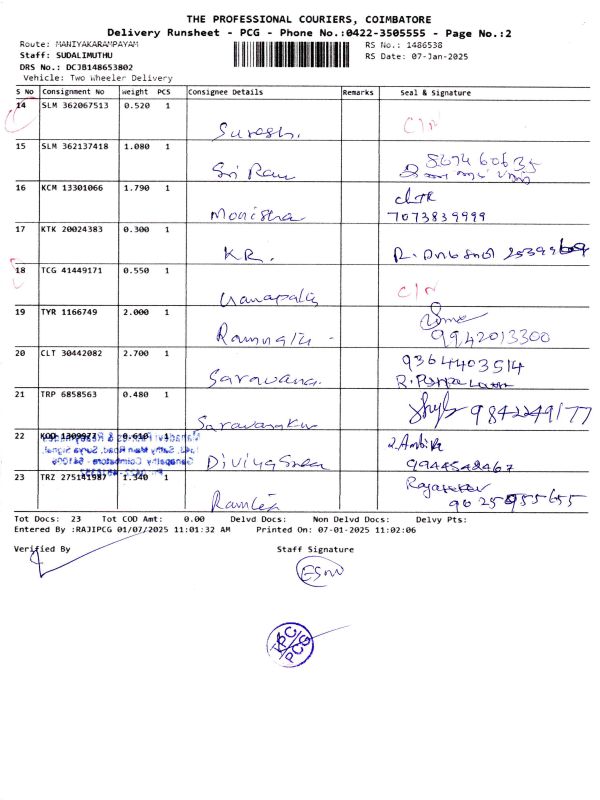 THE PROFESSIONAL COURIERS, COIMBATORE
Delivery Runsheet - PCG - Phone No.:0422-3505555 - Page No.:2
Route: MANIYAKARAMPAYAM RS No.: 1486538
Staff: SUDALIMUTHU RS Date: 07-Jan-2025
DRS No.: DCJB148653802
Vehicle: Two Wheeler Delivery
S No Consignment No Weight PCS Consignee Details Remarks Seal & Signature
14 SLM 362067513 0.520 1
Suresh. C/N
15 SLM 362137418 1.080 1
Sri Ram
16 KCM 13301066 1.790 1
Monisha 7073839999
17 KTK 20024383 0.300 1
KR.
18 TCG 41449171 0.550 1
C/N
19 TYR 1166749 2.000 1
9942013300
20 CLT 30442082 2.700 1 9364403514
Saravana.
21 TRP 6858563 0.480 1
9842249177
22 KOD 1309977 0.610 1
9944542467
23 TRZ 275141987 1.340 1
Tot Docs: 23 Tot COD Amt: 0.00 Delvd Docs: Non Delvd Docs: Delvy Pts:
Entered By :RAJIPCG 01/07/2025 11:01:32 AM Printed On: 07-01-2025 11:02:06
Verified By Staff Signature
PCG